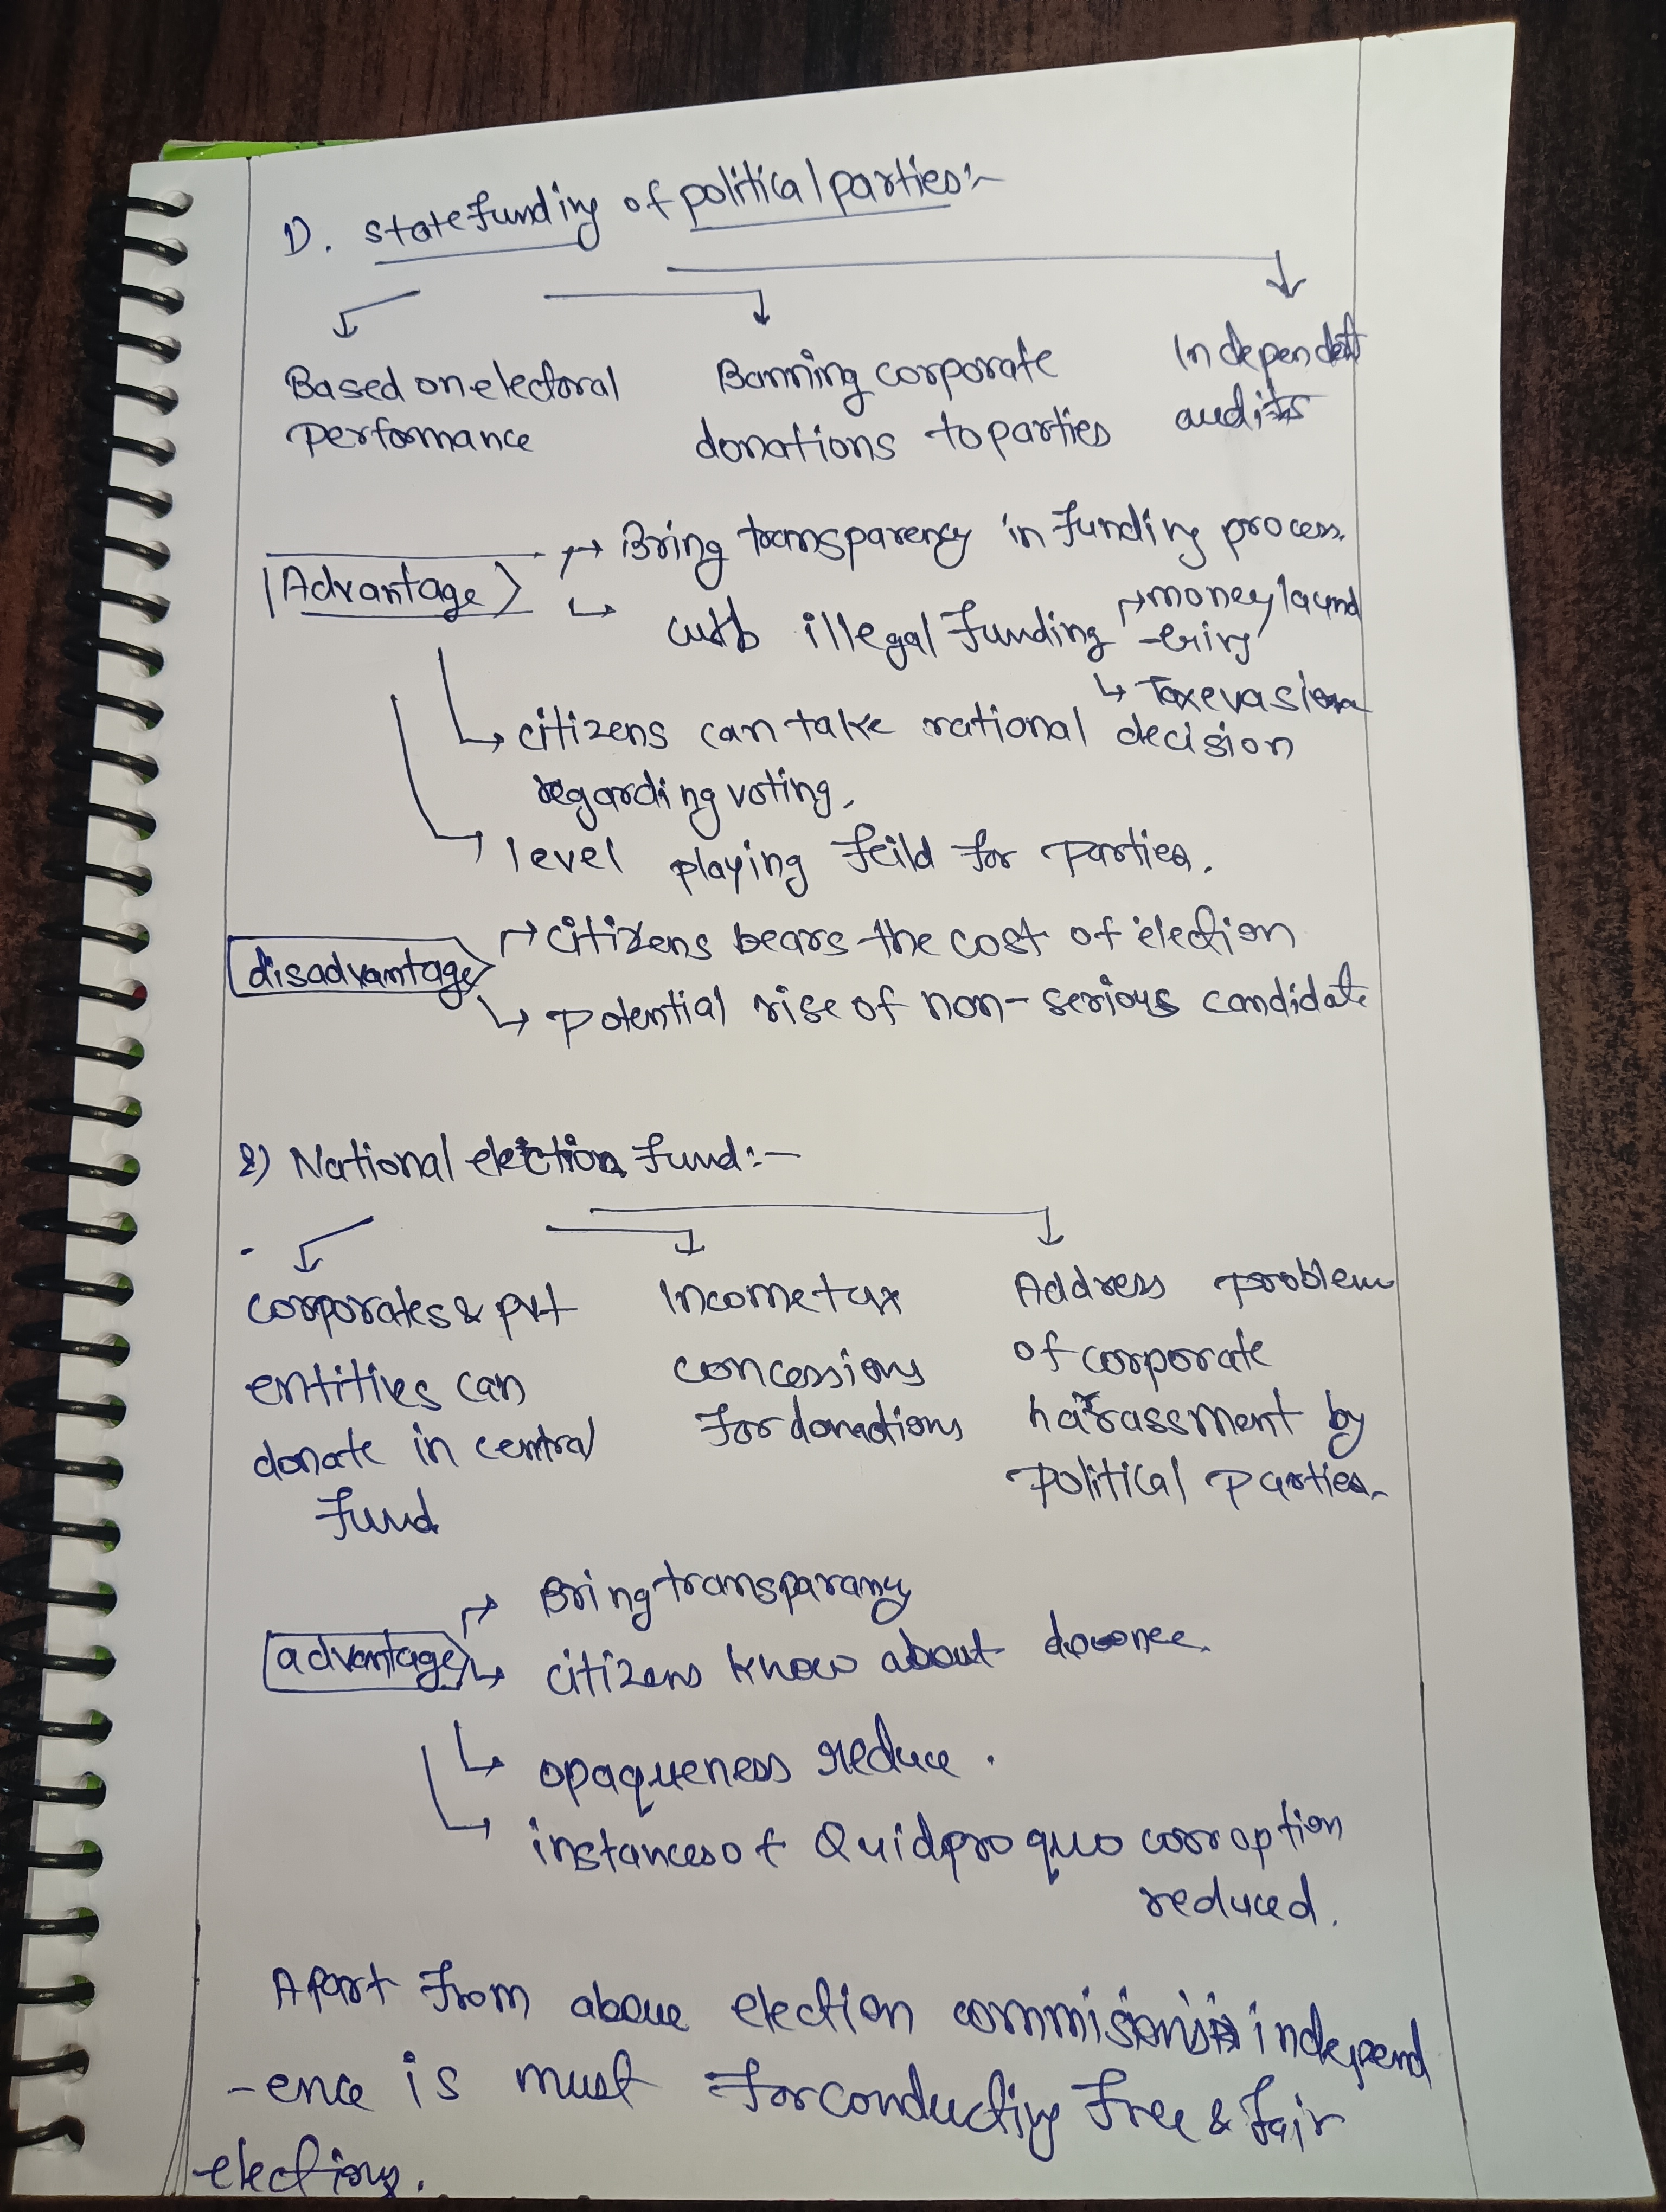 1). state funding of political parties:-
Based on electoral
performance
Banning corporate
donations to parties
Independent
audits
Advantage
Bring transparency in funding process.
curb illegal funding
money laund
-ering
Tax evasion
citizens can take rational decision
regarding voting.
level playing feild for parties.
disadvantage
citizens bears the cost of election
potential rise of non-serious candidate
2) National election fund:-
corporates & pvt
entities can
donate in central
fund
Income tax
concessions
for donations
Address problem
of corporate
harassment by
political parties.
advantage
Bring transparany
citizens know about
opaqueness reduce.
instances of Quid pro quo corroption
reduced.
Apart from above election commisions independ
-ence is must for conducting free & fair
elections.